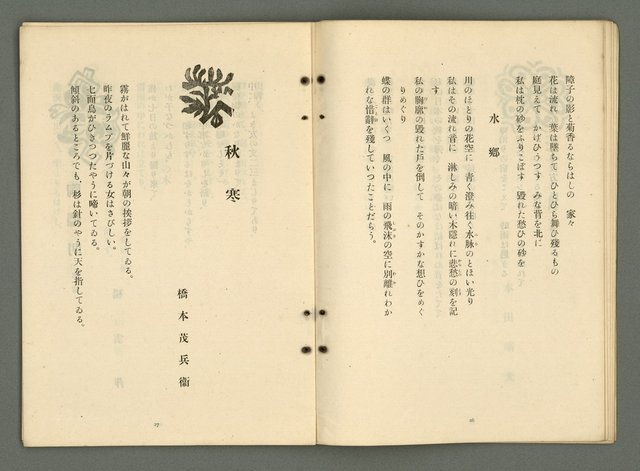 障子の影と菊香るならはしの　家々
花は流れ　葉は墜ちて　ひとひら舞ひ殘るもの
庭見えて　かげひうつす　みな背を北に
私は枕の砂をふりこぼす　毀れた愁ひの砂を
水鄉
川のほとりの花空に　靑く澄み往く水脉のとほい光り
私はその流れ音に　淋しみの暗い木隱れに悲愁の刻を記
す
私の胸廓の毀れた戶を倒して　そのかすかな想ひをめぐ
りめぐり
蝶の群はいくつ　風の中に　雨の飛沫の空に別離れわか
れな惜辭を殘していつたことだらう。
26
秋寒
橋本茂兵衞
霧がはれて鮮麗な山々が朝の挨拶をしてゐる。
昨夜のラムプを片づける女はさびしい。
七面鳥がひきつつたやうに啼いてゐる。
傾斜のあるところでも、杉は針のやうに天を指してゐる。
27